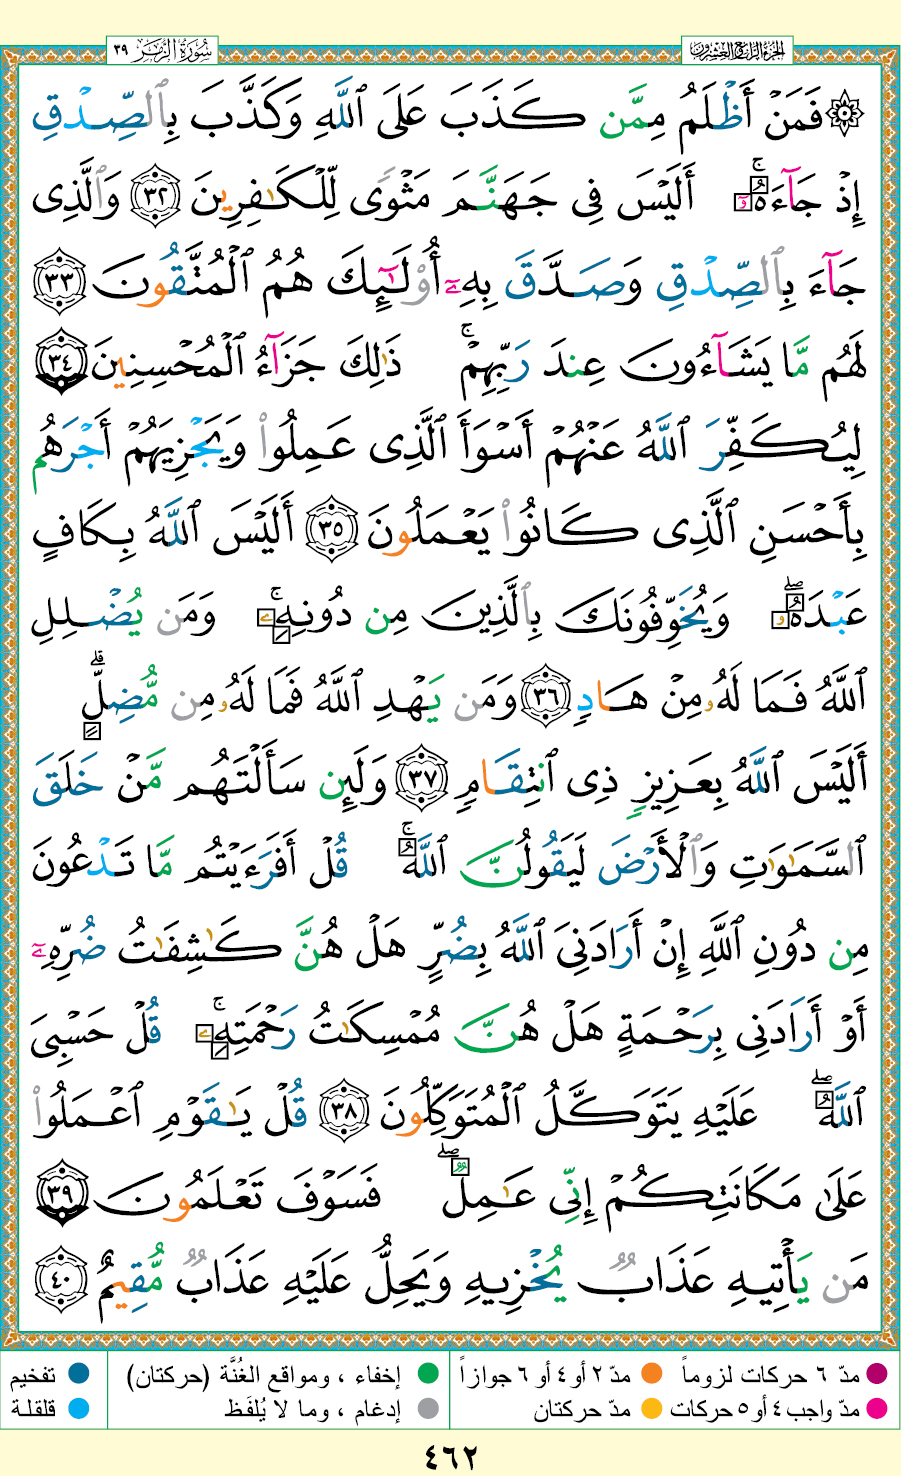 الجزء الرابع والعشرون
سُورَةُ الزُّمَر ٣٩
۞ فَمَنْ أَظْلَمُ مِمَّن كَذَبَ عَلَى ٱللَّهِ وَكَذَّبَ بِٱلصِّدْقِ
إِذْ جَآءَهُۥٓ ۚ أَلَيْسَ فِى جَهَنَّمَ مَثْوًى لِّلْكَـٰفِرِينَ ٣٢ وَٱلَّذِى
جَآءَ بِٱلصِّدْقِ وَصَدَّقَ بِهِۦٓ أُو۟لَـٰٓئِكَ هُمُ ٱلْمُتَّقُونَ ٣٣
لَهُم مَّا يَشَآءُونَ عِندَ رَبِّهِمْ ۚ ذَٰلِكَ جَزَآءُ ٱلْمُحْسِنِينَ ٣٤
لِيُكَفِّرَ ٱللَّهُ عَنْهُمْ أَسْوَأَ ٱلَّذِى عَمِلُوا۟ وَيَجْزِيَهُمْ أَجْرَهُم
بِأَحْسَنِ ٱلَّذِى كَانُوا۟ يَعْمَلُونَ ٣٥ أَلَيْسَ ٱللَّهُ بِكَافٍ
عَبْدَهُۥ ۖ وَيُخَوِّفُونَكَ بِٱلَّذِينَ مِن دُونِهِۦ ۚ وَمَن يُضْلِلِ
ٱللَّهُ فَمَا لَهُۥ مِنْ هَادٍ ٣٦ وَمَن يَهْدِ ٱللَّهُ فَمَا لَهُۥ مِن مُّضِلٍّ ۗ
أَلَيْسَ ٱللَّهُ بِعَزِيزٍ ذِى ٱنتِقَامٍ ٣٧ وَلَئِن سَأَلْتَهُم مَّنْ خَلَقَ
ٱلسَّمَـٰوَٰتِ وَٱلْأَرْضَ لَيَقُولُنَّ ٱللَّهُ ۚ قُلْ أَفَرَءَيْتُم مَّا تَدْعُونَ
مِن دُونِ ٱللَّهِ إِنْ أَرَادَنِىَ ٱللَّهُ بِضُرٍّ هَلْ هُنَّ كَـٰشِفَـٰتُ ضُرِّهِۦٓ
أَوْ أَرَادَنِى بِرَحْمَةٍ هَلْ هُنَّ مُمْسِكَـٰتُ رَحْمَتِهِۦ ۚ قُلْ حَسْبِىَ
ٱللَّهُ ۖ عَلَيْهِ يَتَوَكَّلُ ٱلْمُتَوَكِّلُونَ ٣٨ قُلْ يَـٰقَوْمِ ٱعْمَلُوا۟
عَلَىٰ مَكَانَتِكُمْ إِنِّى عَـٰمِلٌ ۖ فَسَوْفَ تَعْلَمُونَ ٣٩
مَن يَأْتِيهِ عَذَابٌ يُخْزِيهِ وَيَحِلُّ عَلَيْهِ عَذَابٌ مُّقِيمٌ ٤٠
مدّ ٦ حركات لزوماً مدّ ٢ أو ٤ أو ٦ جوازاً إخفاء ، ومواقع الغُنَّة (حركتان) تفخيم
مدّ واجب ٤ أو ٥ حركات مدّ حركتان إدغام ، وما لا يُلفَظ قلقلة
٤٦٢